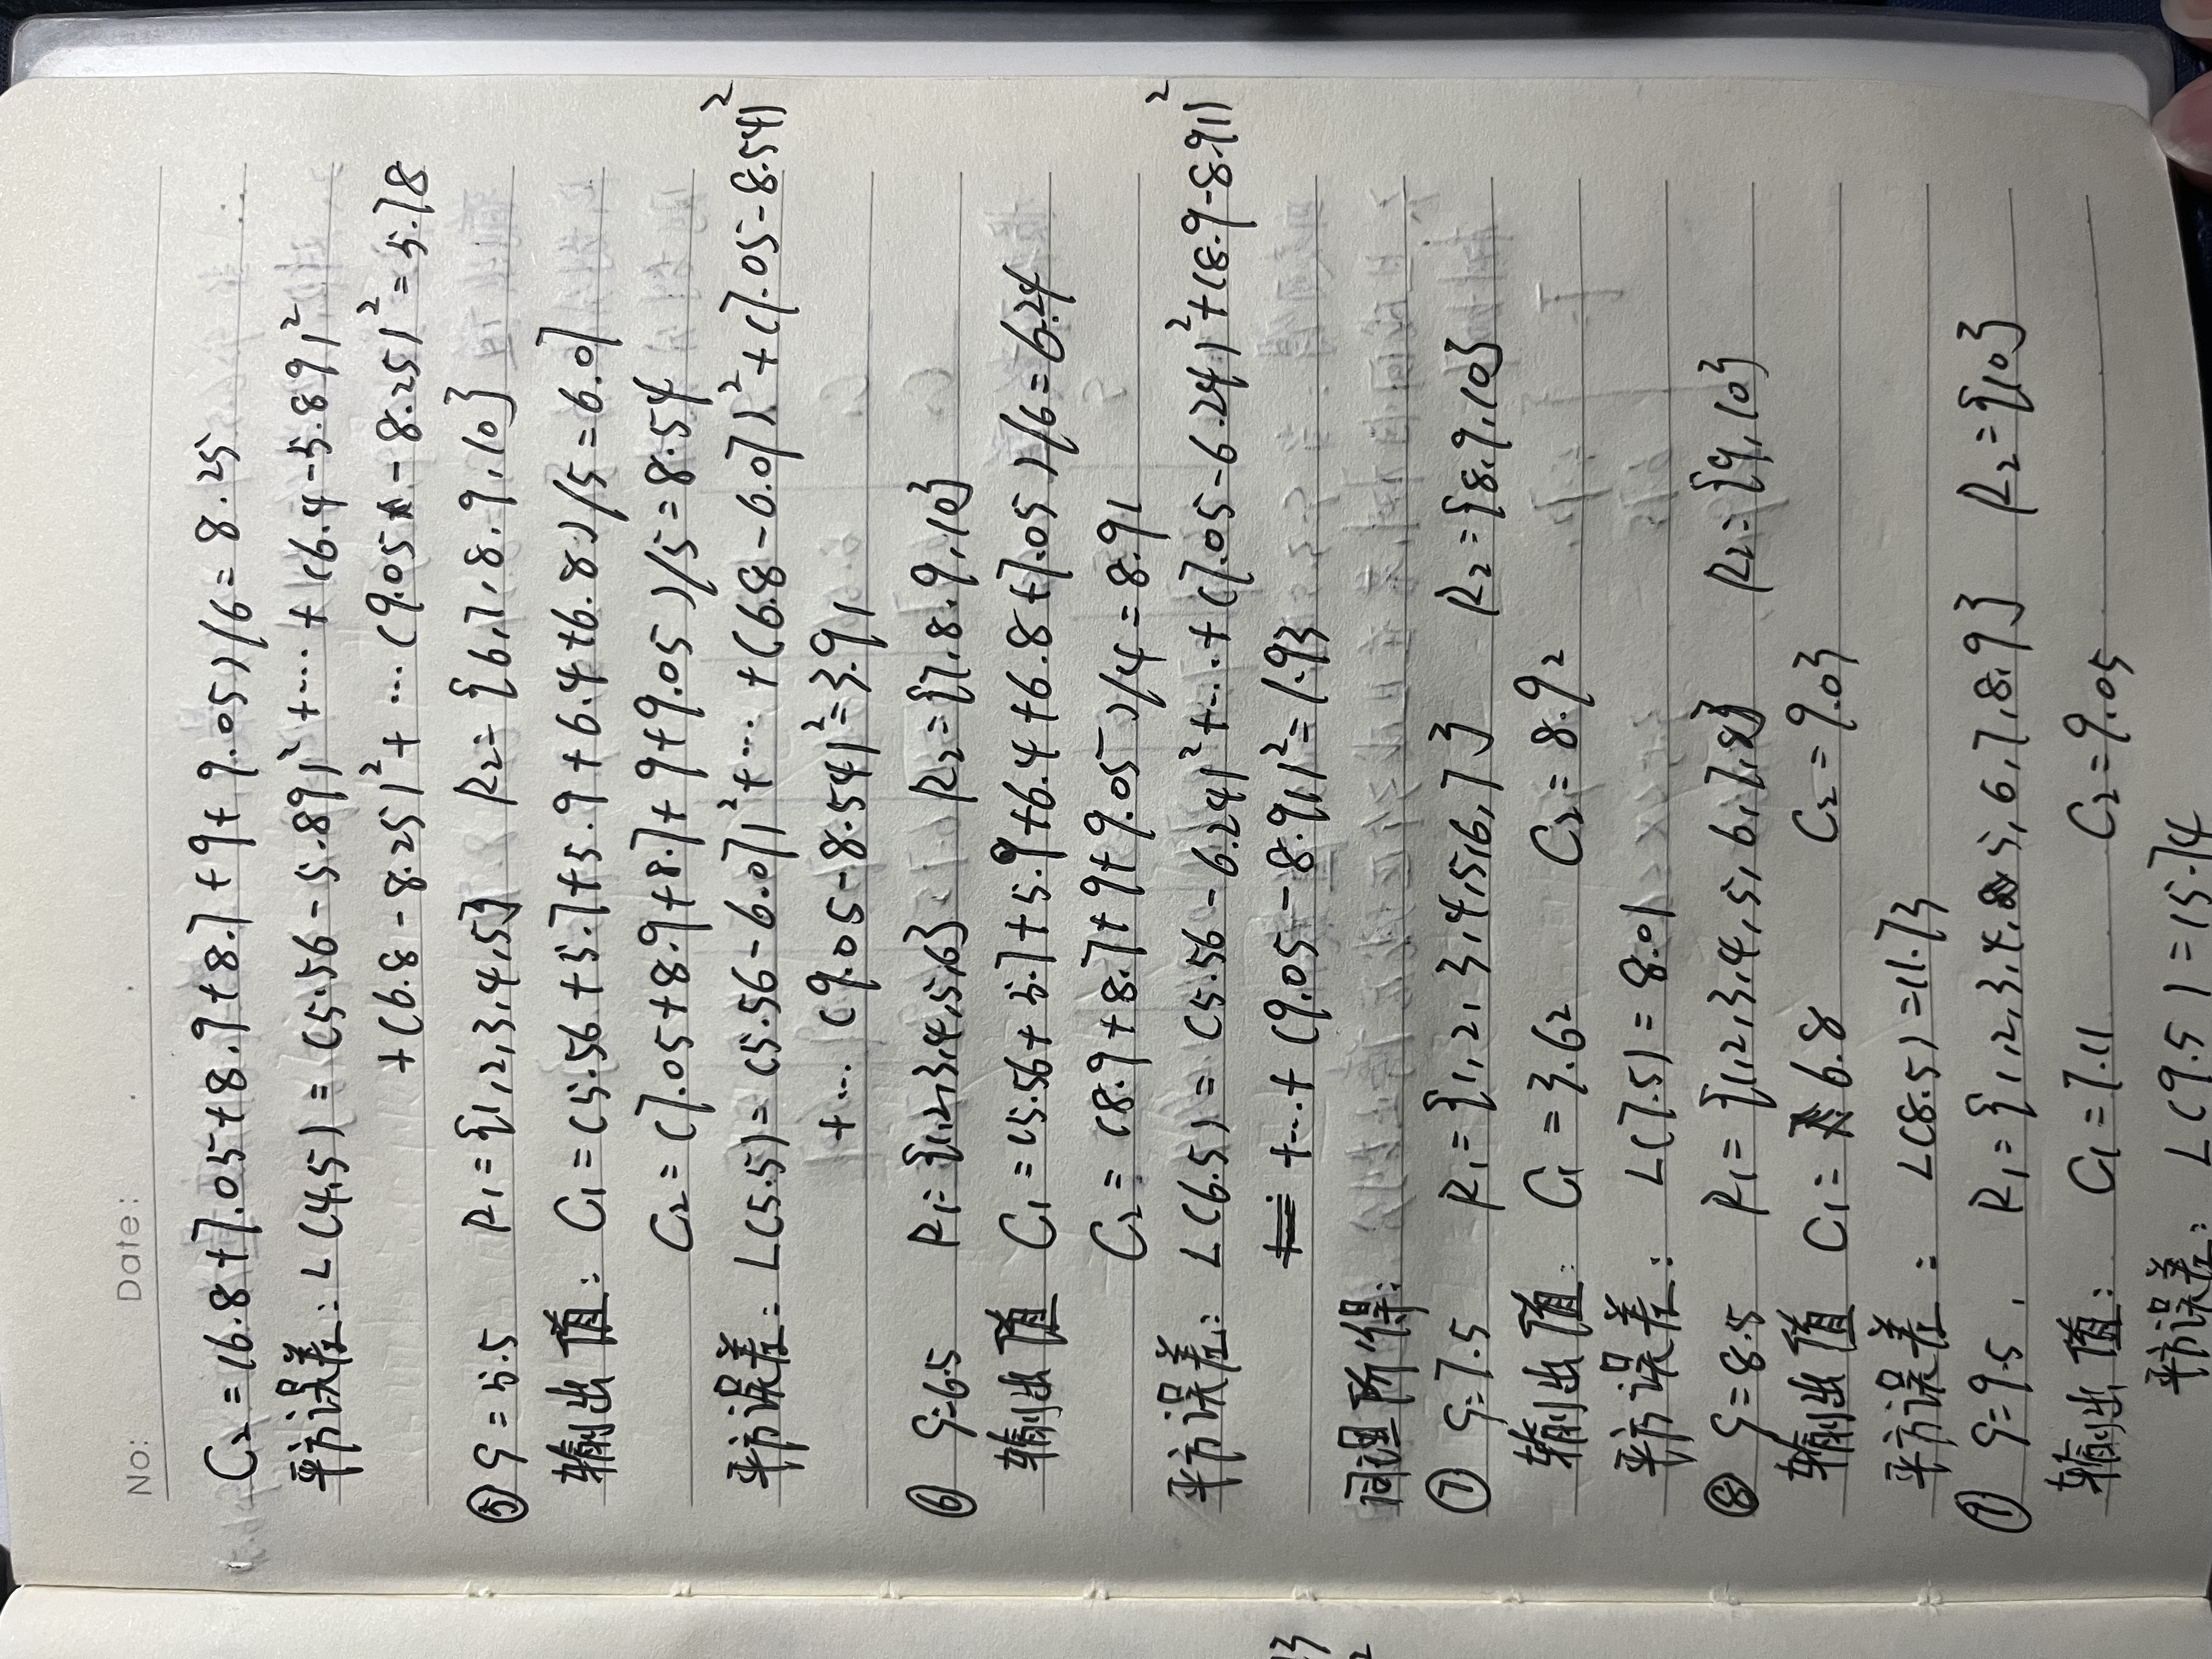 No:
Date:
C₂ = (6.8+7.05+8.9+8.7+9+9.05)/6 = 8.25
平方误差: L(4.5) = (5.56-5.89)²+…+(6.4-5.89)²
+(6.8-8.25)²+…(9.05-8.25)²=5.78
⑤ S=5.5 R₁={1,2,3,4,5} R₂={6,7,8,9,10}
输出值: C₁=(5.56+5.7+5.9+6.4+6.8)/5=6.07
C₂=(7.05+8.9+8.7+9+9.05)/5=8.54
平方误差: L(5.5)=(5.56-6.07)²+…+(6.8-6.07)²+(7.05-8.54)²
+…(9.05-8.54)²=3.91
⑥ S=6.5 R₁={1,2,3,4,5,6} R₂={7,8,9,10}
输出值 C₁=(5.56+5.7+5.9+6.4+6.8+7.05)/6=6.24
C₂=(8.9+8.7+9+9.05)/4=8.91
平方误差: L(6.5)=(5.56-6.24)²+…+(7.05-6.24)²+(8.9-8.91)²
+…+(9.05-8.91)²=1.93
同理所得:
⑦ S=7.5 R₁={1,2,3,4,5,6,7} R₂={8,9,10}
输出值: C₁=3.62 C₂=8.92
平方误差: L(7.5)=8.01
⑧ S=8.5 R₁={1,2,3,4,5,6,7,8} R₂={9,10}
输出值 C₁=6.8 C₂=9.03
平方误差: L(8.5)=11.73
⑨ S=9.5. R₁={1,2,3,4,5,6,7,8,9} R₂={10}
输出值: C₁=7.11 C₂=9.05
平方误差: L(9.5)=15.74